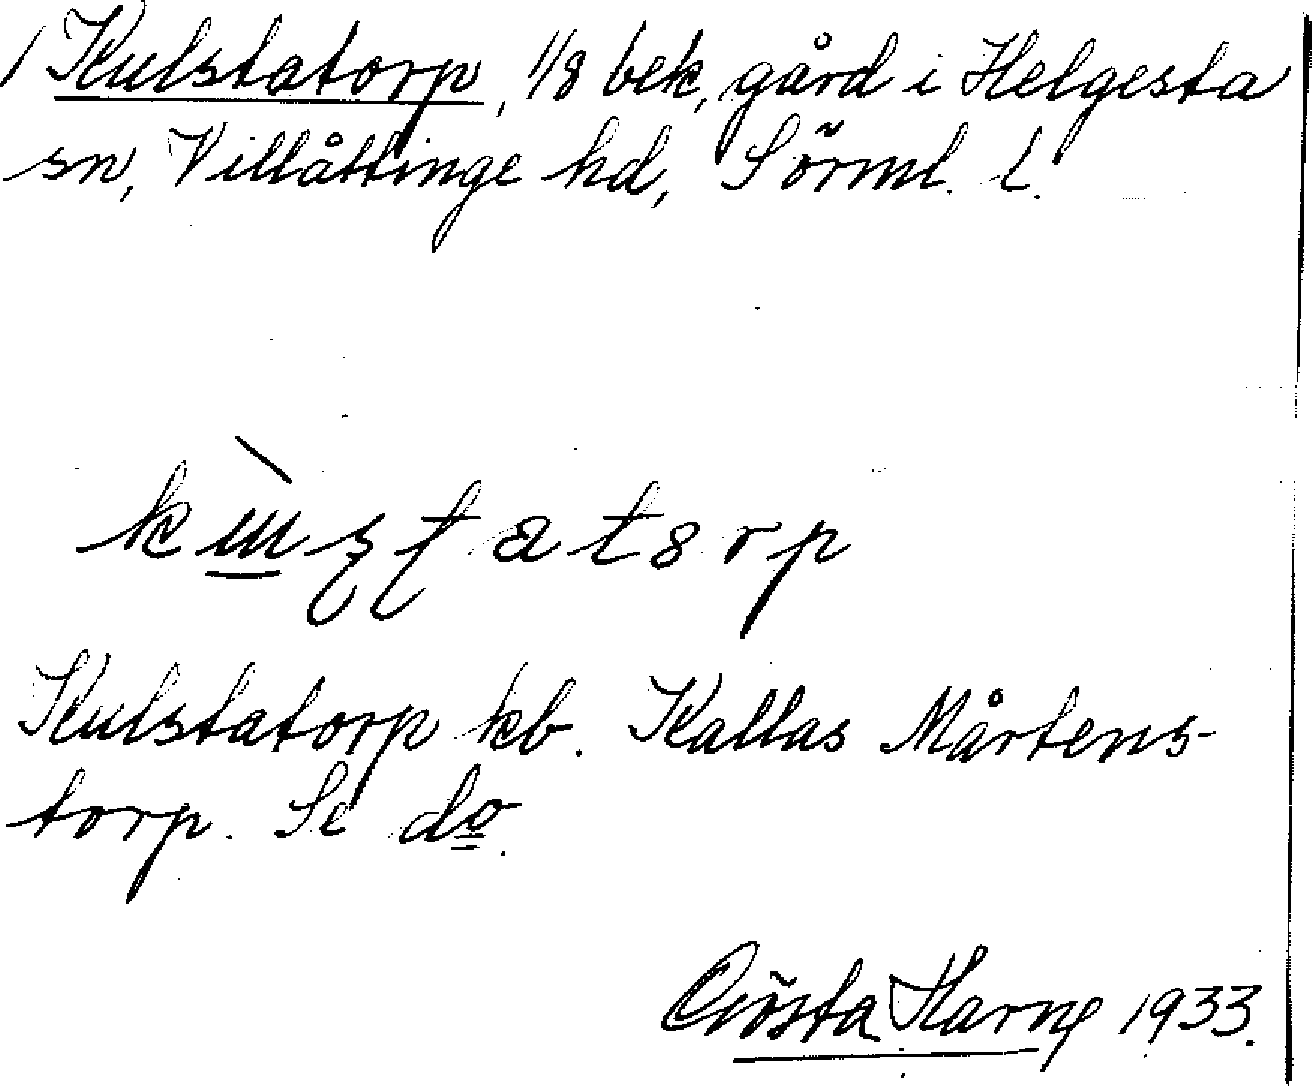 / Kulstatorp, 1/8 bek, gård i Helgesta
sn, Villåttinge hd, Sörml. l.
Kulstatorp kb. Kallas Mårtens-
torp. Se do.
Gösta Harne 1933.